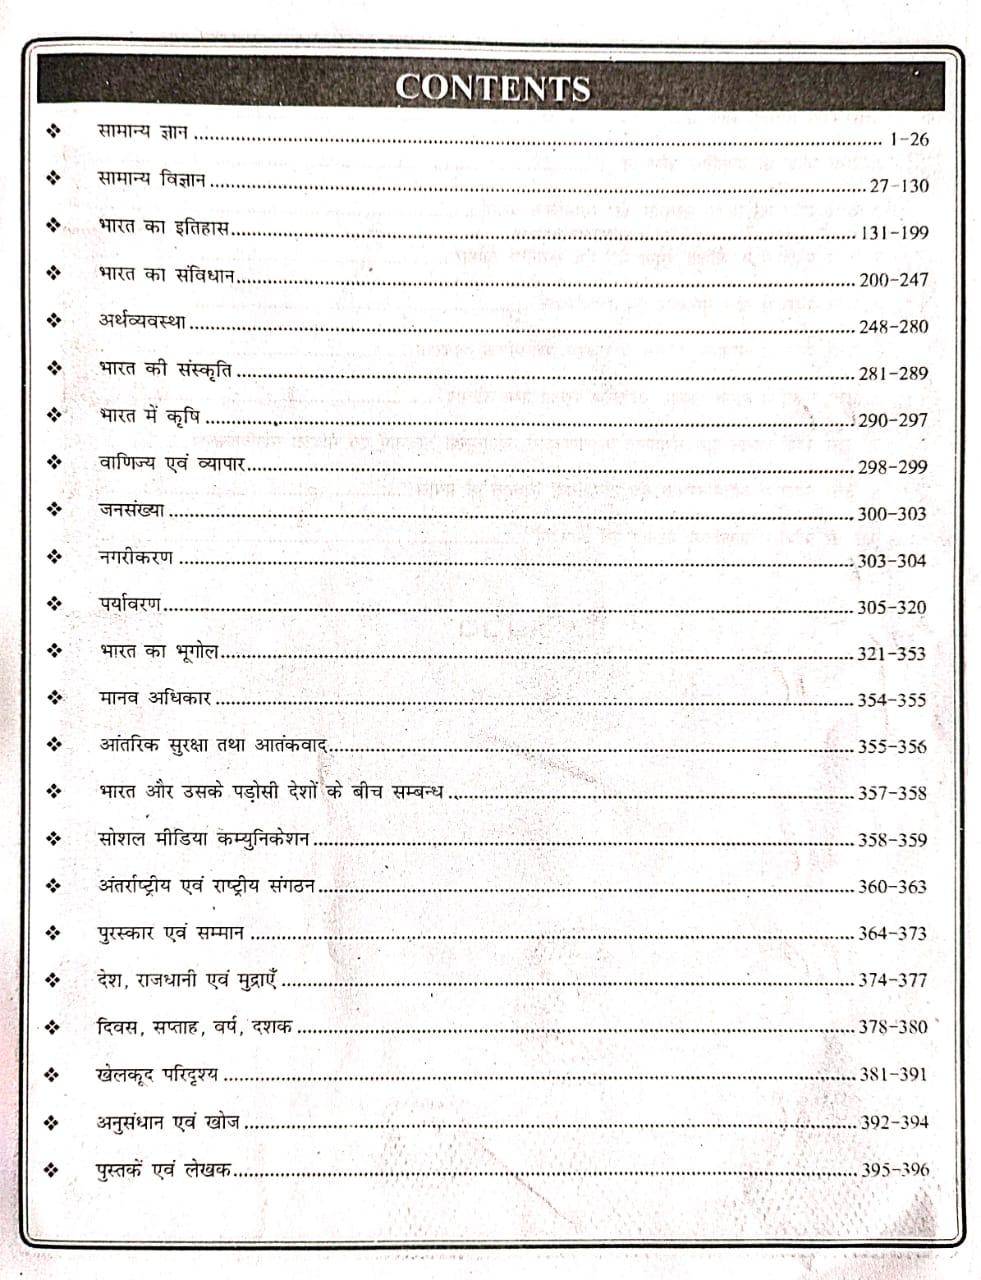 CONTENTS
❖ सामान्य ज्ञान 1-26
❖ सामान्य विज्ञान 27-130
❖ भारत का इतिहास 131-199
❖ भारत का संविधान 200-247
❖ अर्थव्यवस्था 248-280
❖ भारत की संस्कृति 281-289
❖ भारत में कृषि 290-297
❖ वाणिज्य एवं व्यापार 298-299
❖ जनसंख्या 300-303
❖ नगरीकरण 303-304
❖ पर्यावरण 305-320
❖ भारत का भूगोल 321-353
❖ मानव अधिकार 354-355
❖ आंतरिक सुरक्षा तथा आतंकवाद 355-356
❖ भारत और उसके पड़ोसी देशों के बीच सम्बन्ध 357-358
❖ सोशल मीडिया कम्युनिकेशन 358-359
❖ अंतर्राष्ट्रीय एवं राष्ट्रीय संगठन 360-363
❖ पुरस्कार एवं सम्मान 364-373
❖ देश, राजधानी एवं मुद्राएँ 374-377
❖ दिवस, सप्ताह, वर्ष, दशक 378-380
❖ खेलकूद परिदृश्य 381-391
❖ अनुसंधान एवं खोज 392-394
❖ पुस्तकें एवं लेखक 395-396